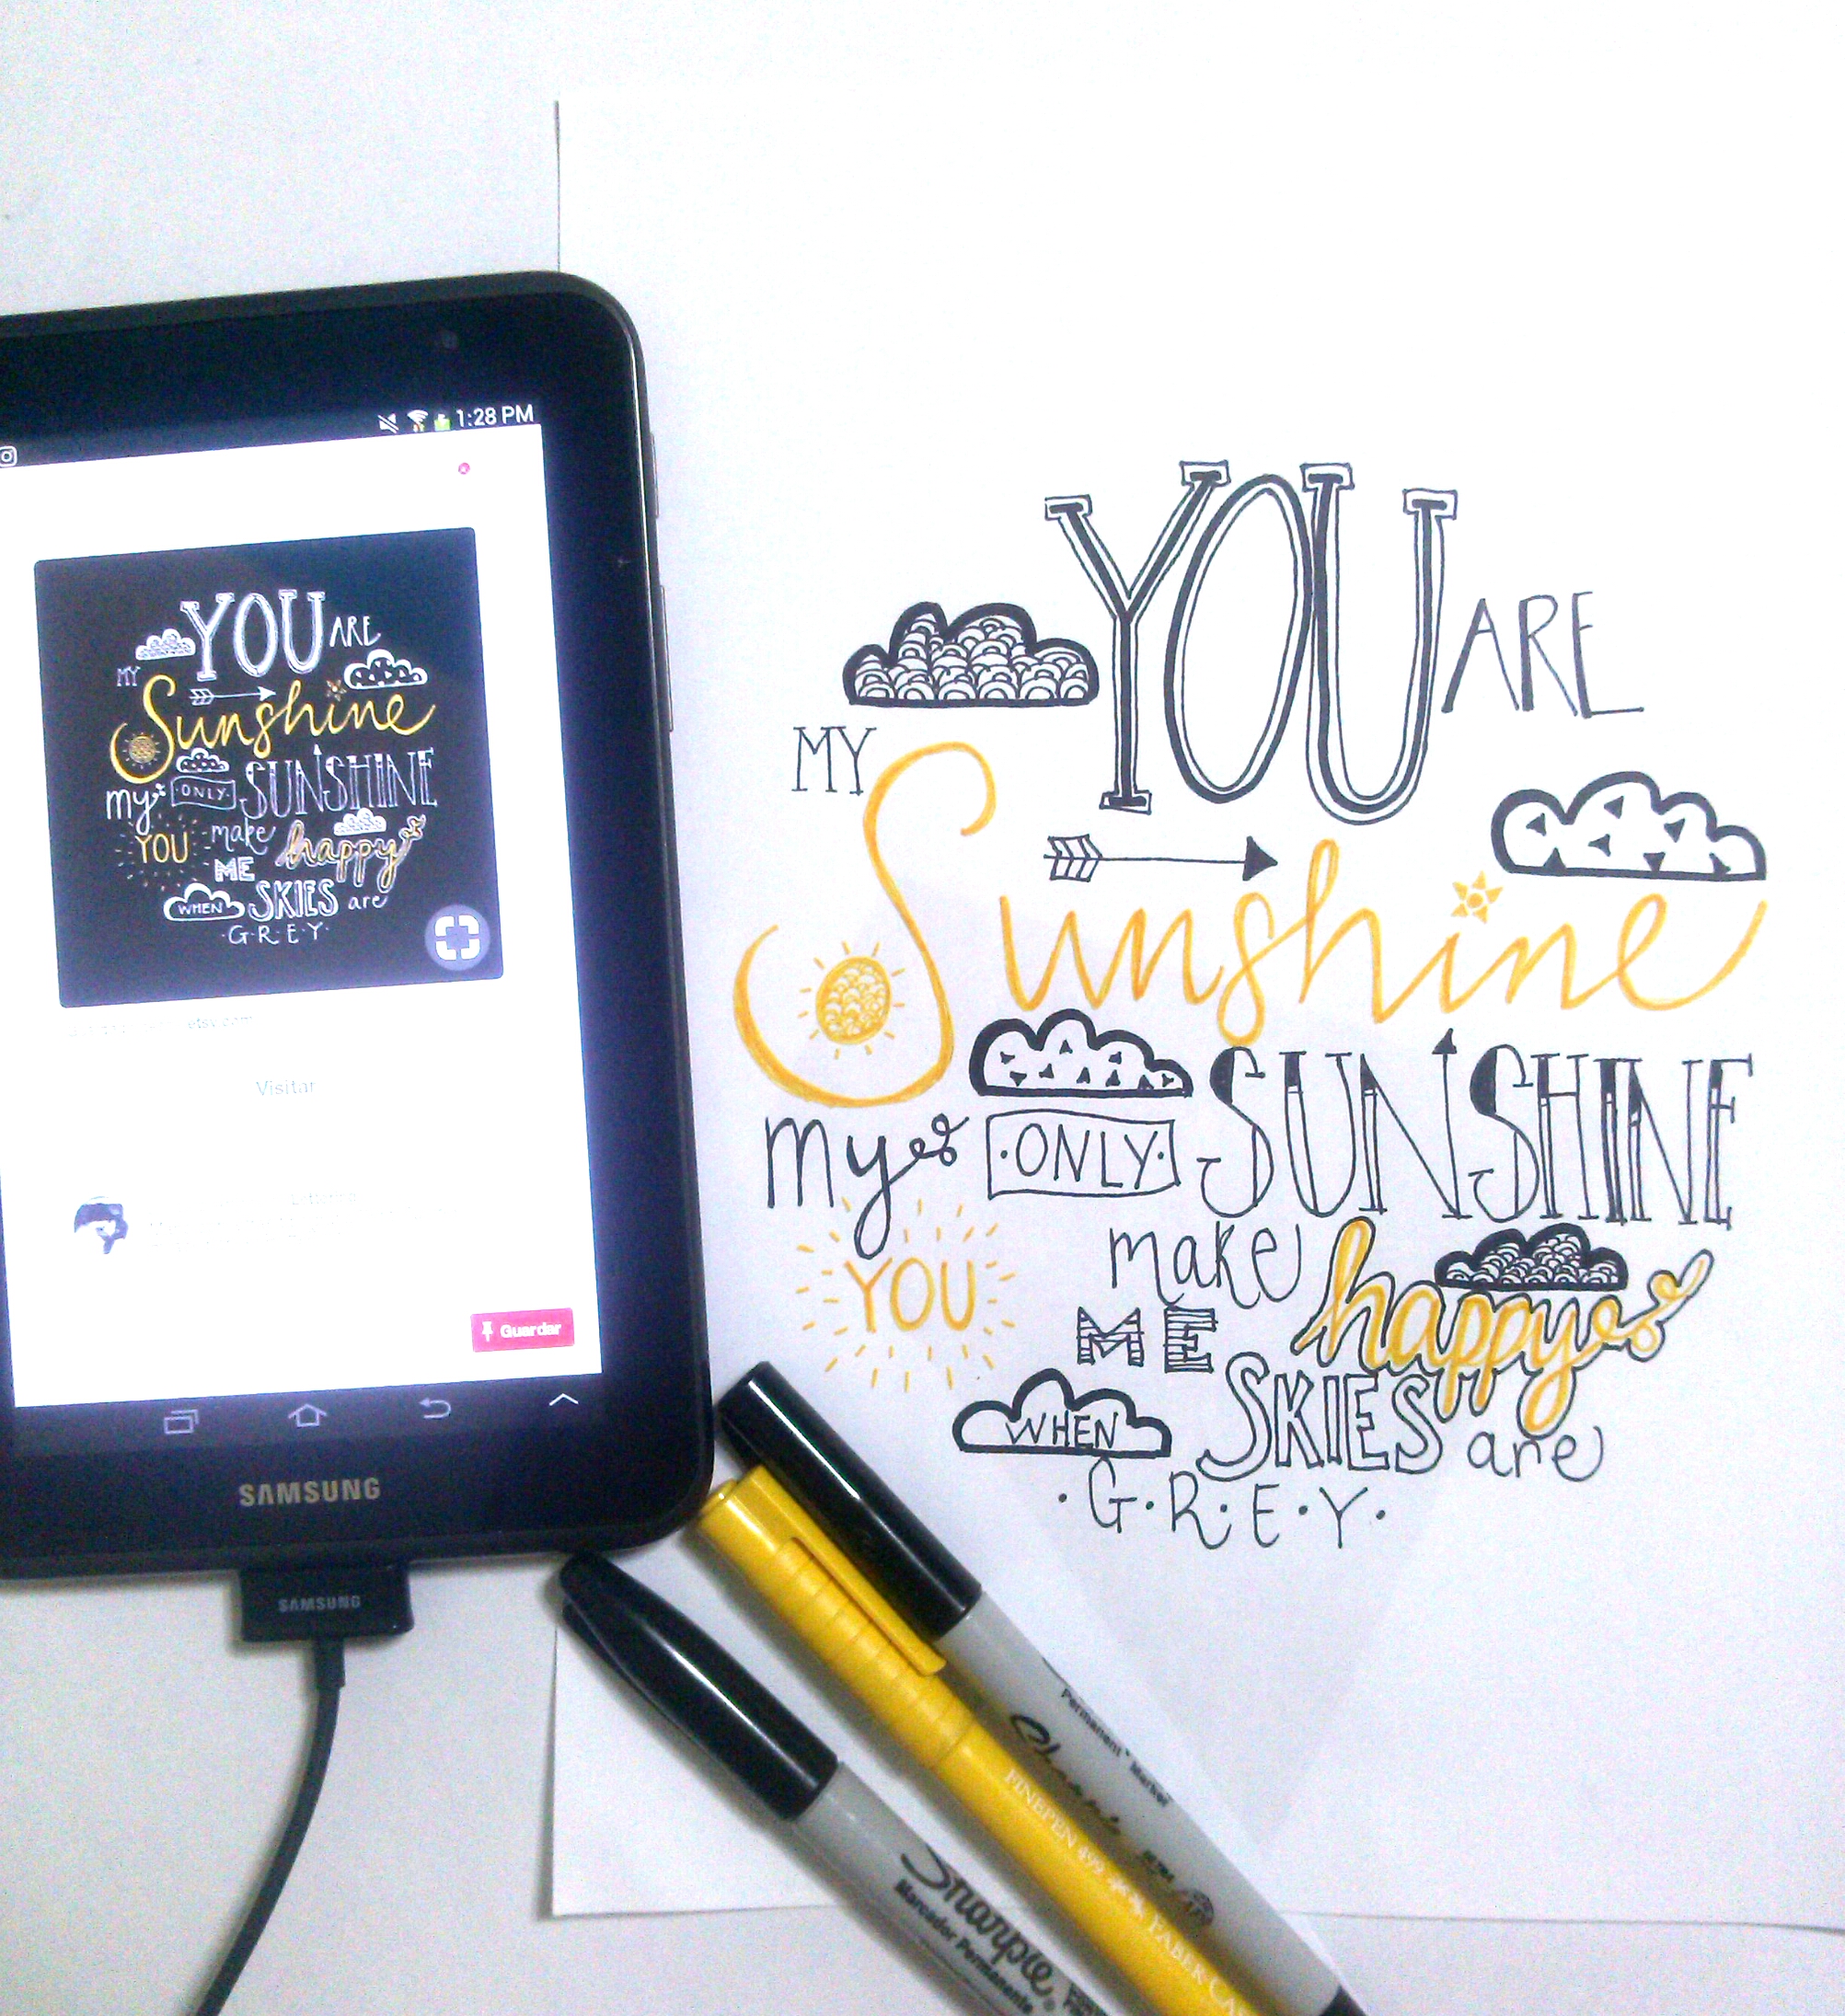 1:28 PM
YOU ARE
MY
Sunshine
my ONLY SUNSHINE
YOU make happy
ME
WHEN SKIES are
G.R.E.Y.
etsy.com
Visitar
Guardar
SAMSUNG
SAMSUNG
YOU ARE
MY
Sunshine
my ·ONLY· SUNSHINE
YOU make happy
ME
WHEN SKIES are
·G·R·E·Y·
Permanent Marker
Sharpie
FINEPEN 499 FABER CAS
Sharpie
Marcador Permanente